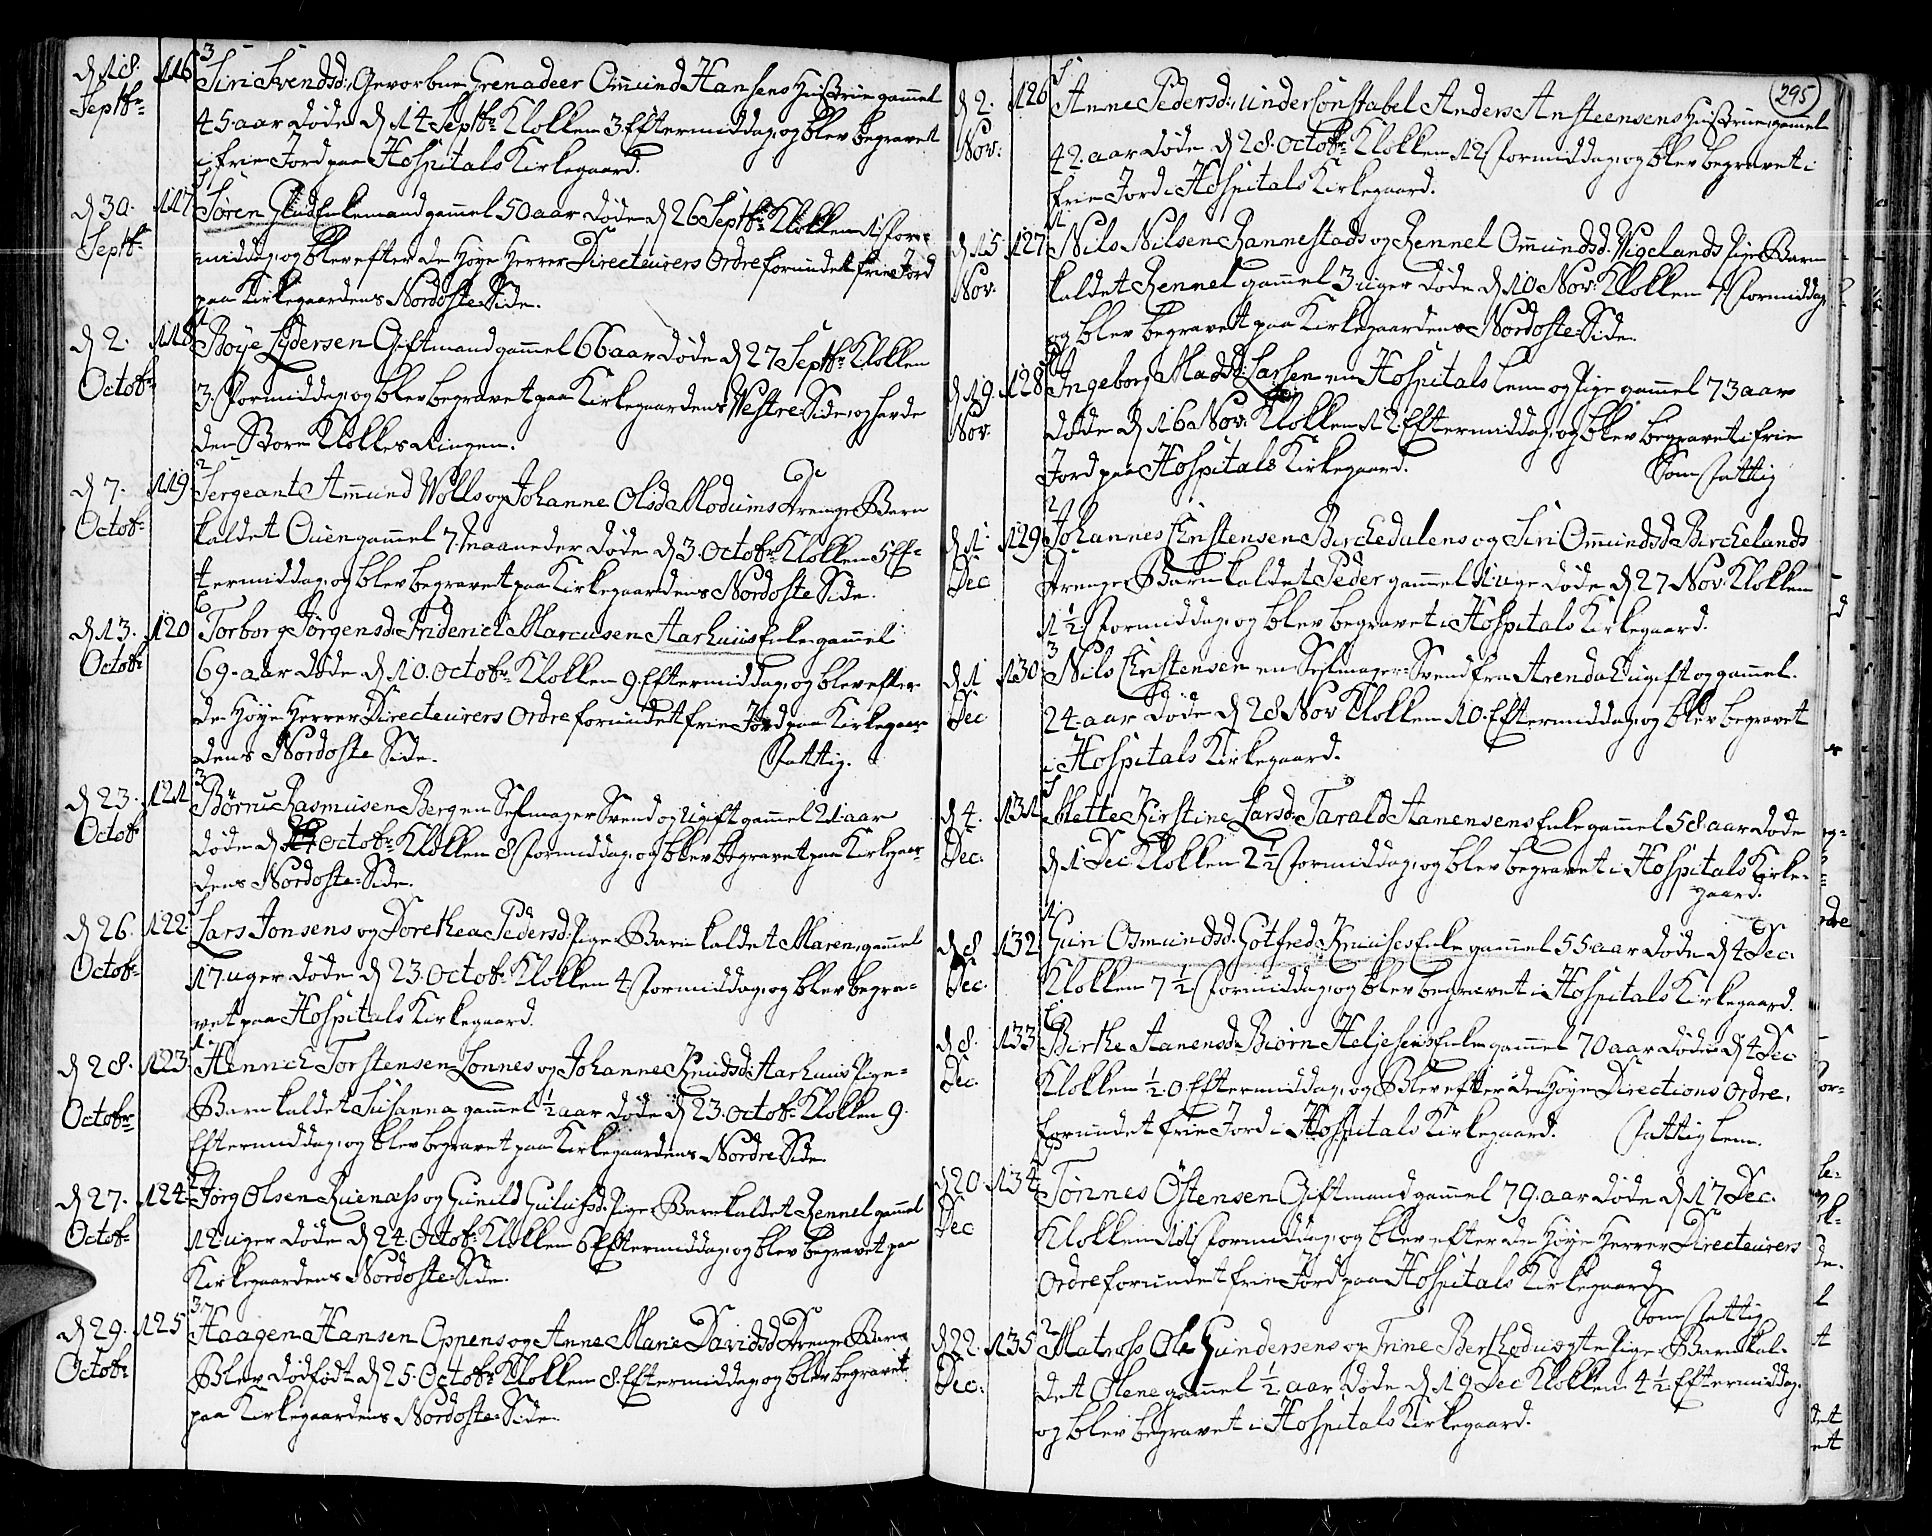 d 18. 116 3 Siri Svendsd: Gevorbne Grenadeer Omund Hansens Hustrue gammel
Septbr 45 aar døde d 14 Septbr Klokken 3 Eftermiddag, og blev begravet
i frie Jord paa Hospitals Kirkegaard.
d 30. 117 Søren Glud Enkemand gammel 50 aar døde d 26 Septbr Klokken 1 for-
Septbr middag, og blev efter de Høye Herrer Directeurers Ordre forundet frie Jord
paa Kirkegaardens Nordoste Side.
d 2. 118 Boye Lydersen Giftmand gammel 66 aar døde d 27 Septbr Klokken
Octobr 3. Formiddag, og blev begravet paa Kirkegaardens Vestre Side, og havde
den Store Klokkes Ringen.
d 7. 119 2 Sergeant Amund Wolls og Johanne Olsd Modums Drenge Barn
Octobr kaldet Ouen gammel 7 Maaneder døde d 3. Octobr Klokken 5 Ef-
termiddag, og blev begravet paa Kirkegaardens Nordoste Side.
d 13. 120 Torborg Jørgensd: Friderich Marcusen Aarhuus Enke gammel
Octobr 69. aar døde d 10. Octobr Klokken 9. Eftermiddag, og blev efter
de Høye Herrer Directeurers Ordre forundet frie Jord paa Kirkegaar-
dens Nordoste Side. Fattig.
d 23. 121 3 Børru Rasmusen Bergen Seglmager Svend og Ugift gammel 21 aar
Octobr døde d Octobr Klokken 8 Formiddag, og blev begravet paa Kirkegaar-
dens Nordoste Side.
d 26. 122 Lars Jonsens og Dorethea Pedersd: Pige Barn kaldet Maren, gammel
Octobr 17 uger døde d 23. Octobr Klokken 4 Formiddag, og blev begra-
vet paa Hospitals Kirkegaard.
d 28. 123 1. Hennich Torstensen Lonnes og Johanne Knudsd: Aarhuus Pige-
Octobr Barn kaldet Susanna gammel 1/2 aar døde d 23. Octobr Klokken 9.
Eftermiddag, og blev begravet paa Kirkegaardens Nordre Side.
d 27. 124 Jørg Olsen Ruenæss og Gunild Gulufsd: Pige Barn kaldet Rennel gammel
Octobr 12 uger døde d 24. Octobr Klokken 6 Eftermiddag, og blev begravet paa
Kirkegaardens Nordoste Side.
d 29. 125 3. Haagen Hansen Oppens og Anne Marie Davidsd Drenge Barn
Octobr Blev dødfødt d 25. Octobr Klokken 8. Eftermiddag, og blev begravet
paa Kirkegaardens Nordoste Side.
295
d 2. 126 Anne Pedersd: Under Constabel Anders Ansteensens Hustrue gammel
Nov: 42. aar døde d 28. Octobr Klokken 12 Formiddag, og blev begravet i
frie Jord i Hospitals Kirkegaard.
d 15. 127 Nils Nilsen Rannestads og Rennel Omundsd. Vigelands Pige Barn
Nov. kaldet Rennel gammel 3 uger døde d 10 Nov: Klokken 7 Formiddag
og blev begravet paa Kirkegaardens Nordoste Side.
d 19. 128 Ingeborg Madsd: Larsen en Hospitals Lem og Pige gammel 73 aar
Nov. døde d 16 Nov. Klokken 12 Eftermiddag, og blev begravet i frie
Jord paa Hospitals Kirkegaard. Som Fattig
d 1. 129 2 Johannes Christensen Birchedalens og Siri Omundsd Birchelands
Dec Drenge Barn kaldet Peder gammel 1 uge døde d 27 Nov: Klokken
1 1/2 Formiddag, og blev begravet i Hospitals Kirkegaard.
d 1 130 3 Nils Christensen en Seglmager-Svend fra Arendal Ugift og gammel.
Dec 24 aar døde d 28 Nov Klokken 10. Eftermiddag, og blev begravet
i Hospitals Kirkegaard.
d 4. 131 Mette Kirstine Larsd: Tarald Aanensens Enke gammel 58 aar døde
Dec. d 1 Dec Klokken 2 1/2 Formiddag, og blev begravet i Hospitals Kirke-
gaard.
d 8 132 1. Guri Osmundsd. Gotfred Knuses Enke gammel 55 aar døde d 4 Dec.
Dec. Klokken 7 1/2 Formiddag, og blev begravet i Hospitals Kirkegaard.
d 8. 133 Birthe Aanensd: Biørn Heljesens Enke gammel 70 aar døde d 4 Dec
Dec. Klokken 1/2. 0. Eftermiddag, og Blev efter de Høye Directions Ordre,
forundet frie Jord i Hospitals Kirkegaard. Fattig Lem.
d 20. 134 Tønnes Östensen Giftmand gammel 79. aar døde d 17 Dec.
Dec Klokken 11 Formiddag, og blev efter de Høye Herrer Directeurers
Ordre forundet frie Jord paa Hospitals Kirkegaard
Som Fattig
d 22. 135 2 Matross Ole Gundersens og Trine Berthodu Pige Barn kal-
Dec. det Olene gammel 1/2 aar døde d 19 Dec Klokken 4 1/2 Eftermiddag.
og blev begravet i Hospitals Kirkegaard.